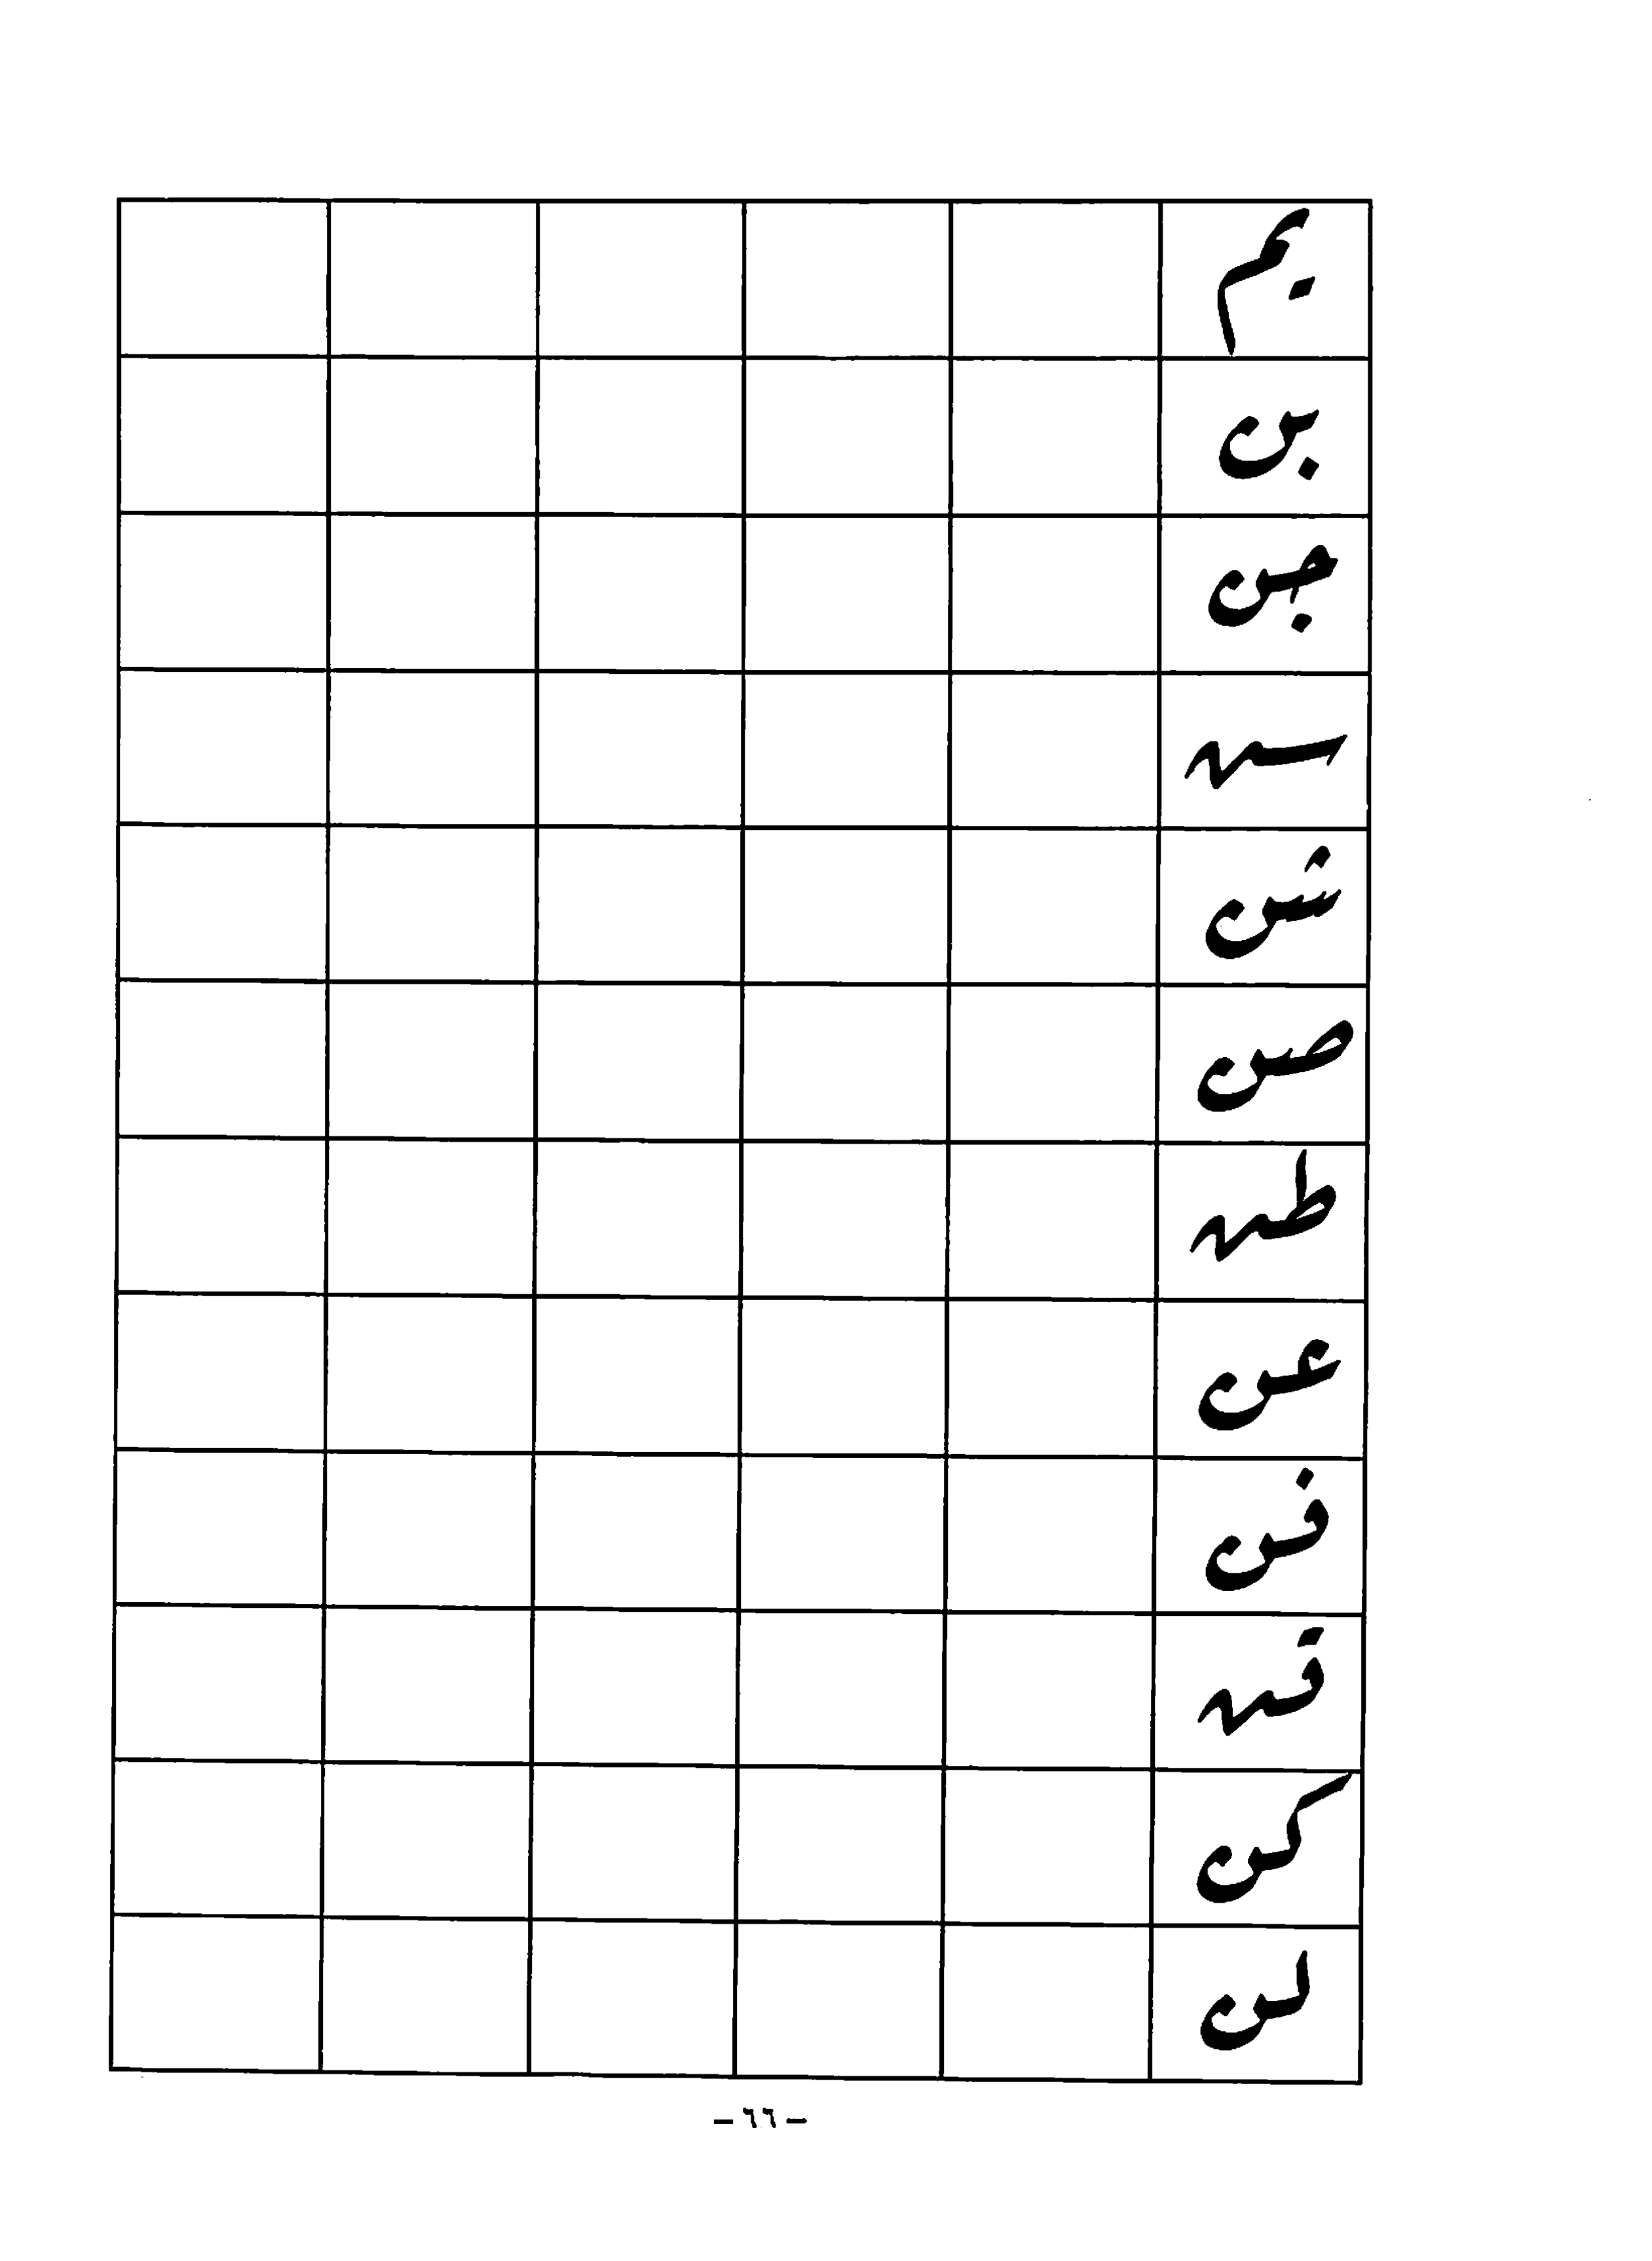 يم
بن
جن
سه
شن
صن
طه
عن
فن
قه
كن
لن
- ٦٦ -